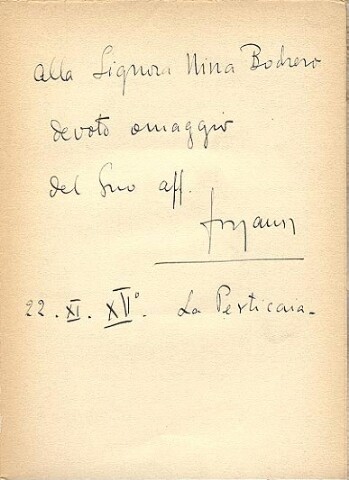 Alla Signora Nina Bodrero
devoto omaggio
del Suo aff.
22. XI. XV°. La Perticaia.